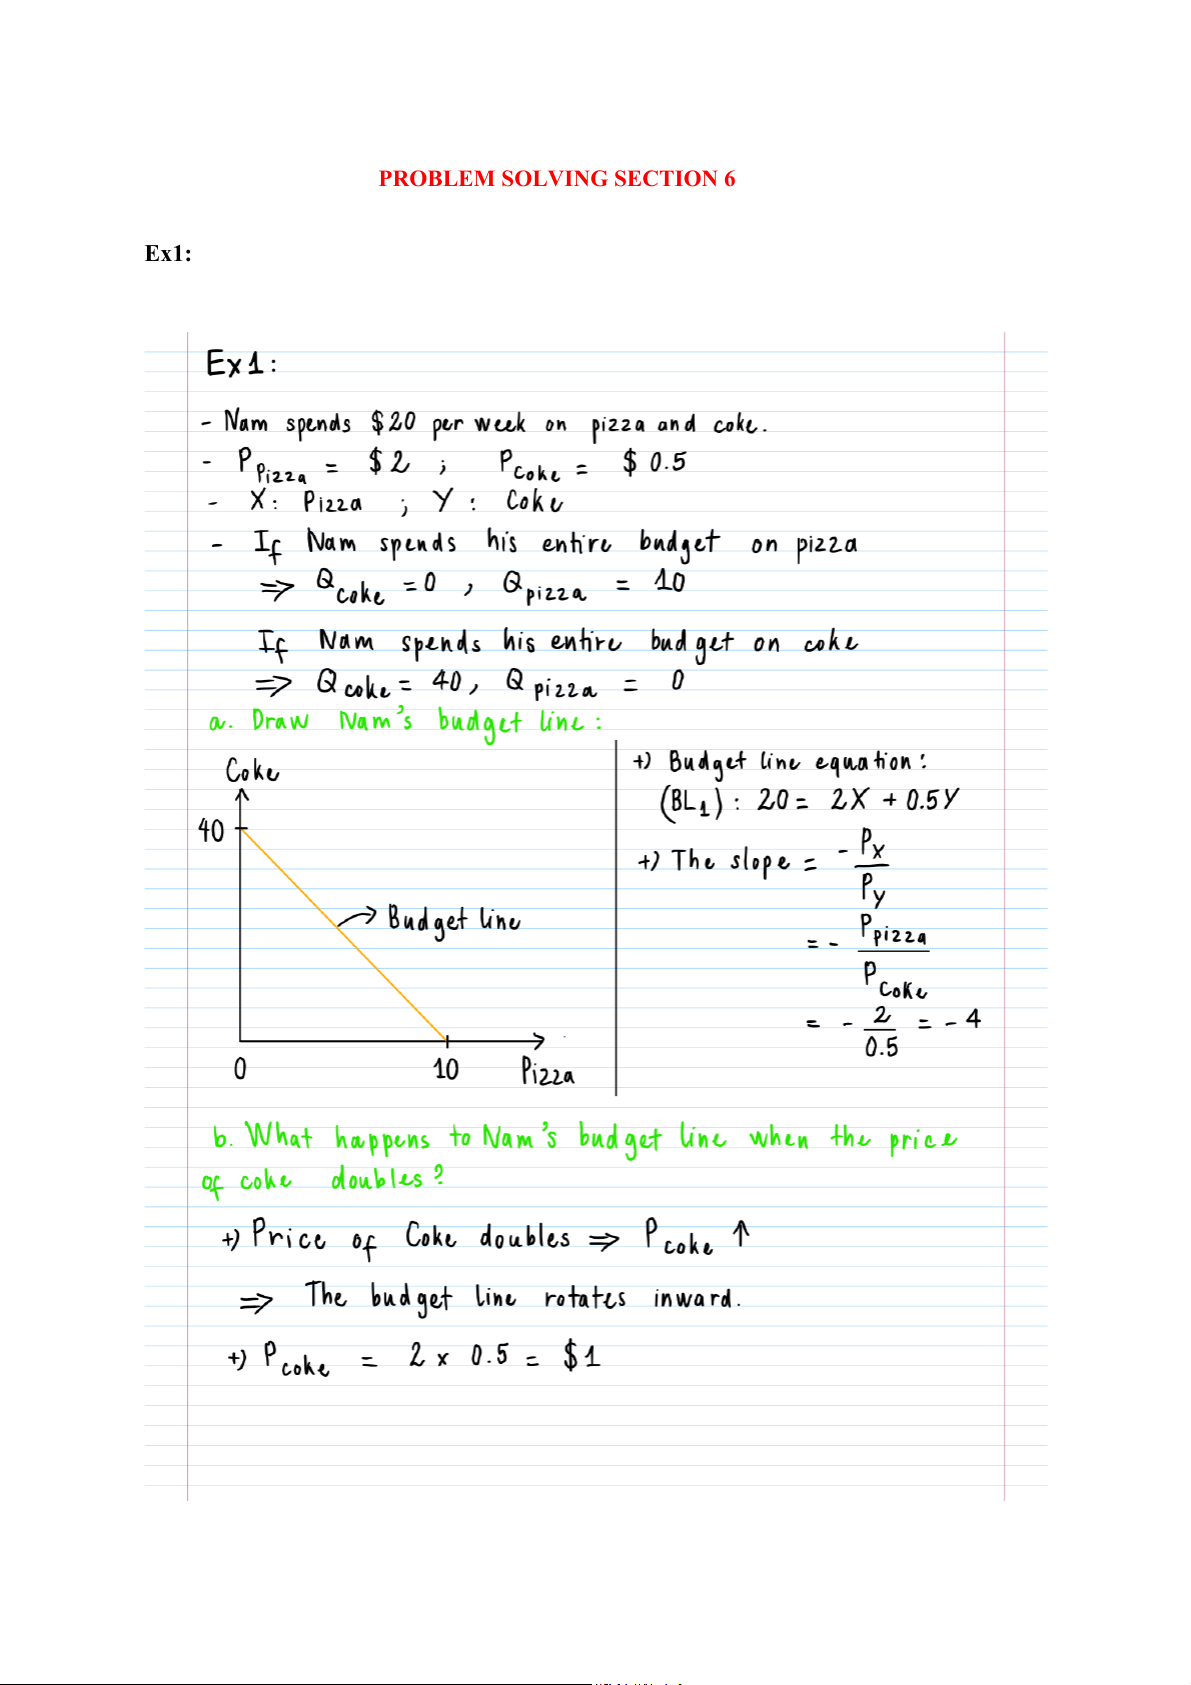 PROBLEM SOLVING SECTION 6
Ex1:
Ex1:
- Nam spends $20 per week on pizza and coke.
- P Pizza = $2 ; P Coke = $0.5
- X: Pizza ; Y: Coke
- If Nam spends his entire budget on pizza
⇒ Q coke = 0 , Q pizza = 10
If Nam spends his entire budget on coke
⇒ Q coke = 40, Q pizza = 0
a. Draw Nam's budget line:
Coke
40
Budget line
0
10
Pizza
+) Budget line equation:
(BL1): 20 = 2X + 0.5Y
+) The slope = - PX / PY
= - P pizza / P Coke
= - 2 / 0.5 = - 4
b. What happens to Nam's budget line when the price
of coke doubles?
+) Price of Coke doubles ⇒ P coke ↑
⇒ The budget line rotates inward.
+) P coke = 2 x 0.5 = $1